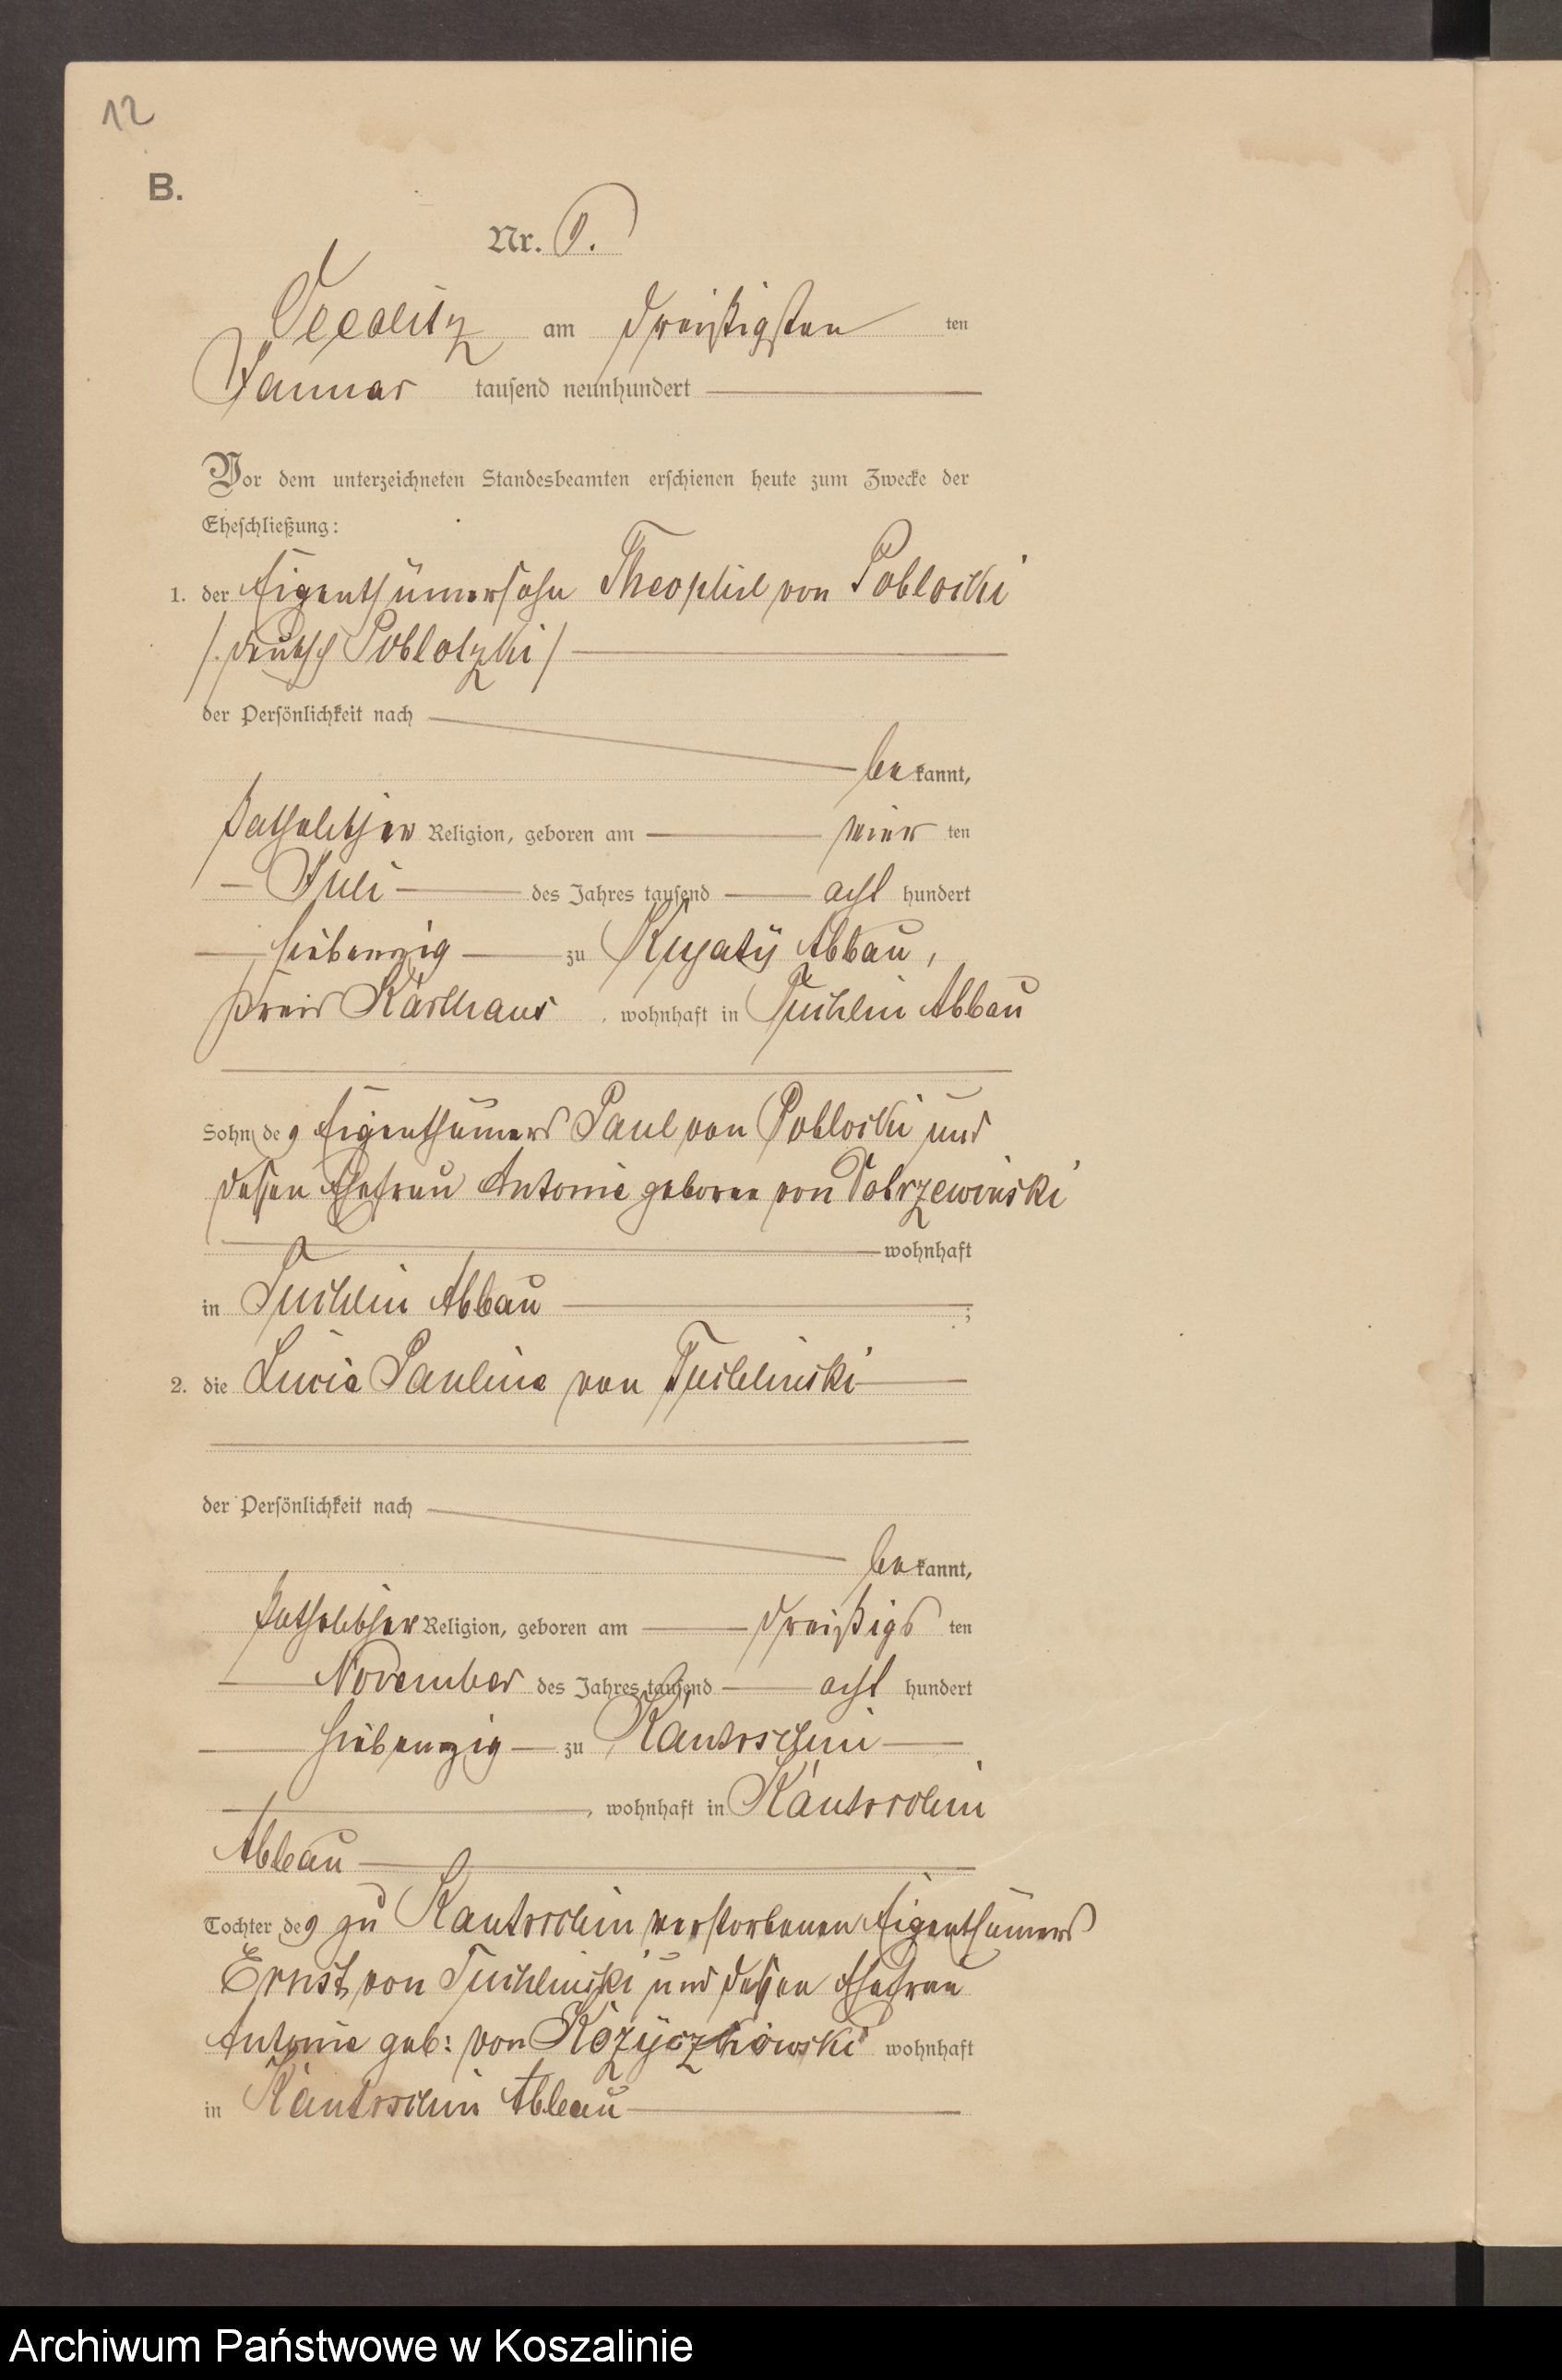 12
B.
Nr.
am dreißigsten ten
Januar tausend neunhundert
Vor dem unterzeichneten Standesbeamten erschienen heute zum Zwecke der
Eheschließung:
1. der Eigenthümersohn Theophil von Poblocki
/: deutsch Poblotzki /
der Persönlichkeit nach
be kannt,
katholischer Religion, geboren am vier ten
Juli des Jahres tausend acht hundert
siebenzig zu Abbau,
Kreis Karthaus, wohnhaft in Tuchlin Abbau
Sohn des Eigenthümers Paul von Poblocki und
dessen Ehefrau Antonie geborne von
wohnhaft
in Tuchlin Abbau ;
2. die Lucia Paulina von Tuchlinski
der Persönlichkeit nach
be kannt,
katholischer Religion, geboren am dreißigs ten
November des Jahres tausend acht hundert
siebenzig zu Kantrschin
, wohnhaft in Kantrschin
Abbau
Tochter des zu Kantrschin verstorbenen Eigenthümers
Ernst von Tuchlinski und dessen Ehefrau
Antonie geb: von Kózyczkowski wohnhaft
in Kantrschin Abbau
Archiwum Państwowe w Koszalinie